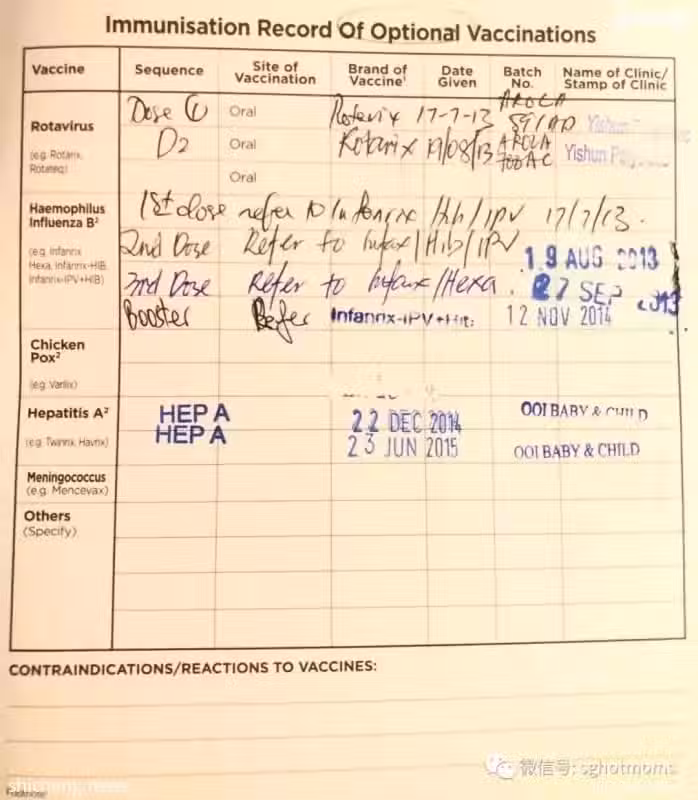 Immunisation Record Of Optional Vaccinations
Vaccine Sequence Site of Vaccination Brand of Vaccine¹ Date Given Batch No. Name of Clinic/ Stamp of Clinic
Rotavirus
(e.g. Rotarix, Rotateq)
Dose ① Oral Rotarix 17-7-13 AROLA
D2 Oral Rotarix 19/08/13 AROLA Yishun
Oral
Haemophilus Influenza B²
(e.g. Infanrix Hexa, Infanrix-HIB, Infanrix-IPV+HIB)
1st dose refer to Infanrix Hib/IPV 17/7/13.
2nd Dose Refer to Infax/Hib/IPV 19 AUG 2013
3rd Dose Refer to Infanx/Hexa. 27 SEP 2013
Booster Refer Infanrix-IPV+Hib: 12 NOV 2014
Chicken Pox²
(e.g. Varilix)
Hepatitis A²
(e.g. Twinrix, Havrix)
HEP A 22 DEC 2014 OOI BABY & CHILD
HEP A 23 JUN 2015 OOI BABY & CHILD
Meningococcus
(e.g. Mencevax)
Others
(Specify)
CONTRAINDICATIONS/REACTIONS TO VACCINES:
微信号: sghotmoms